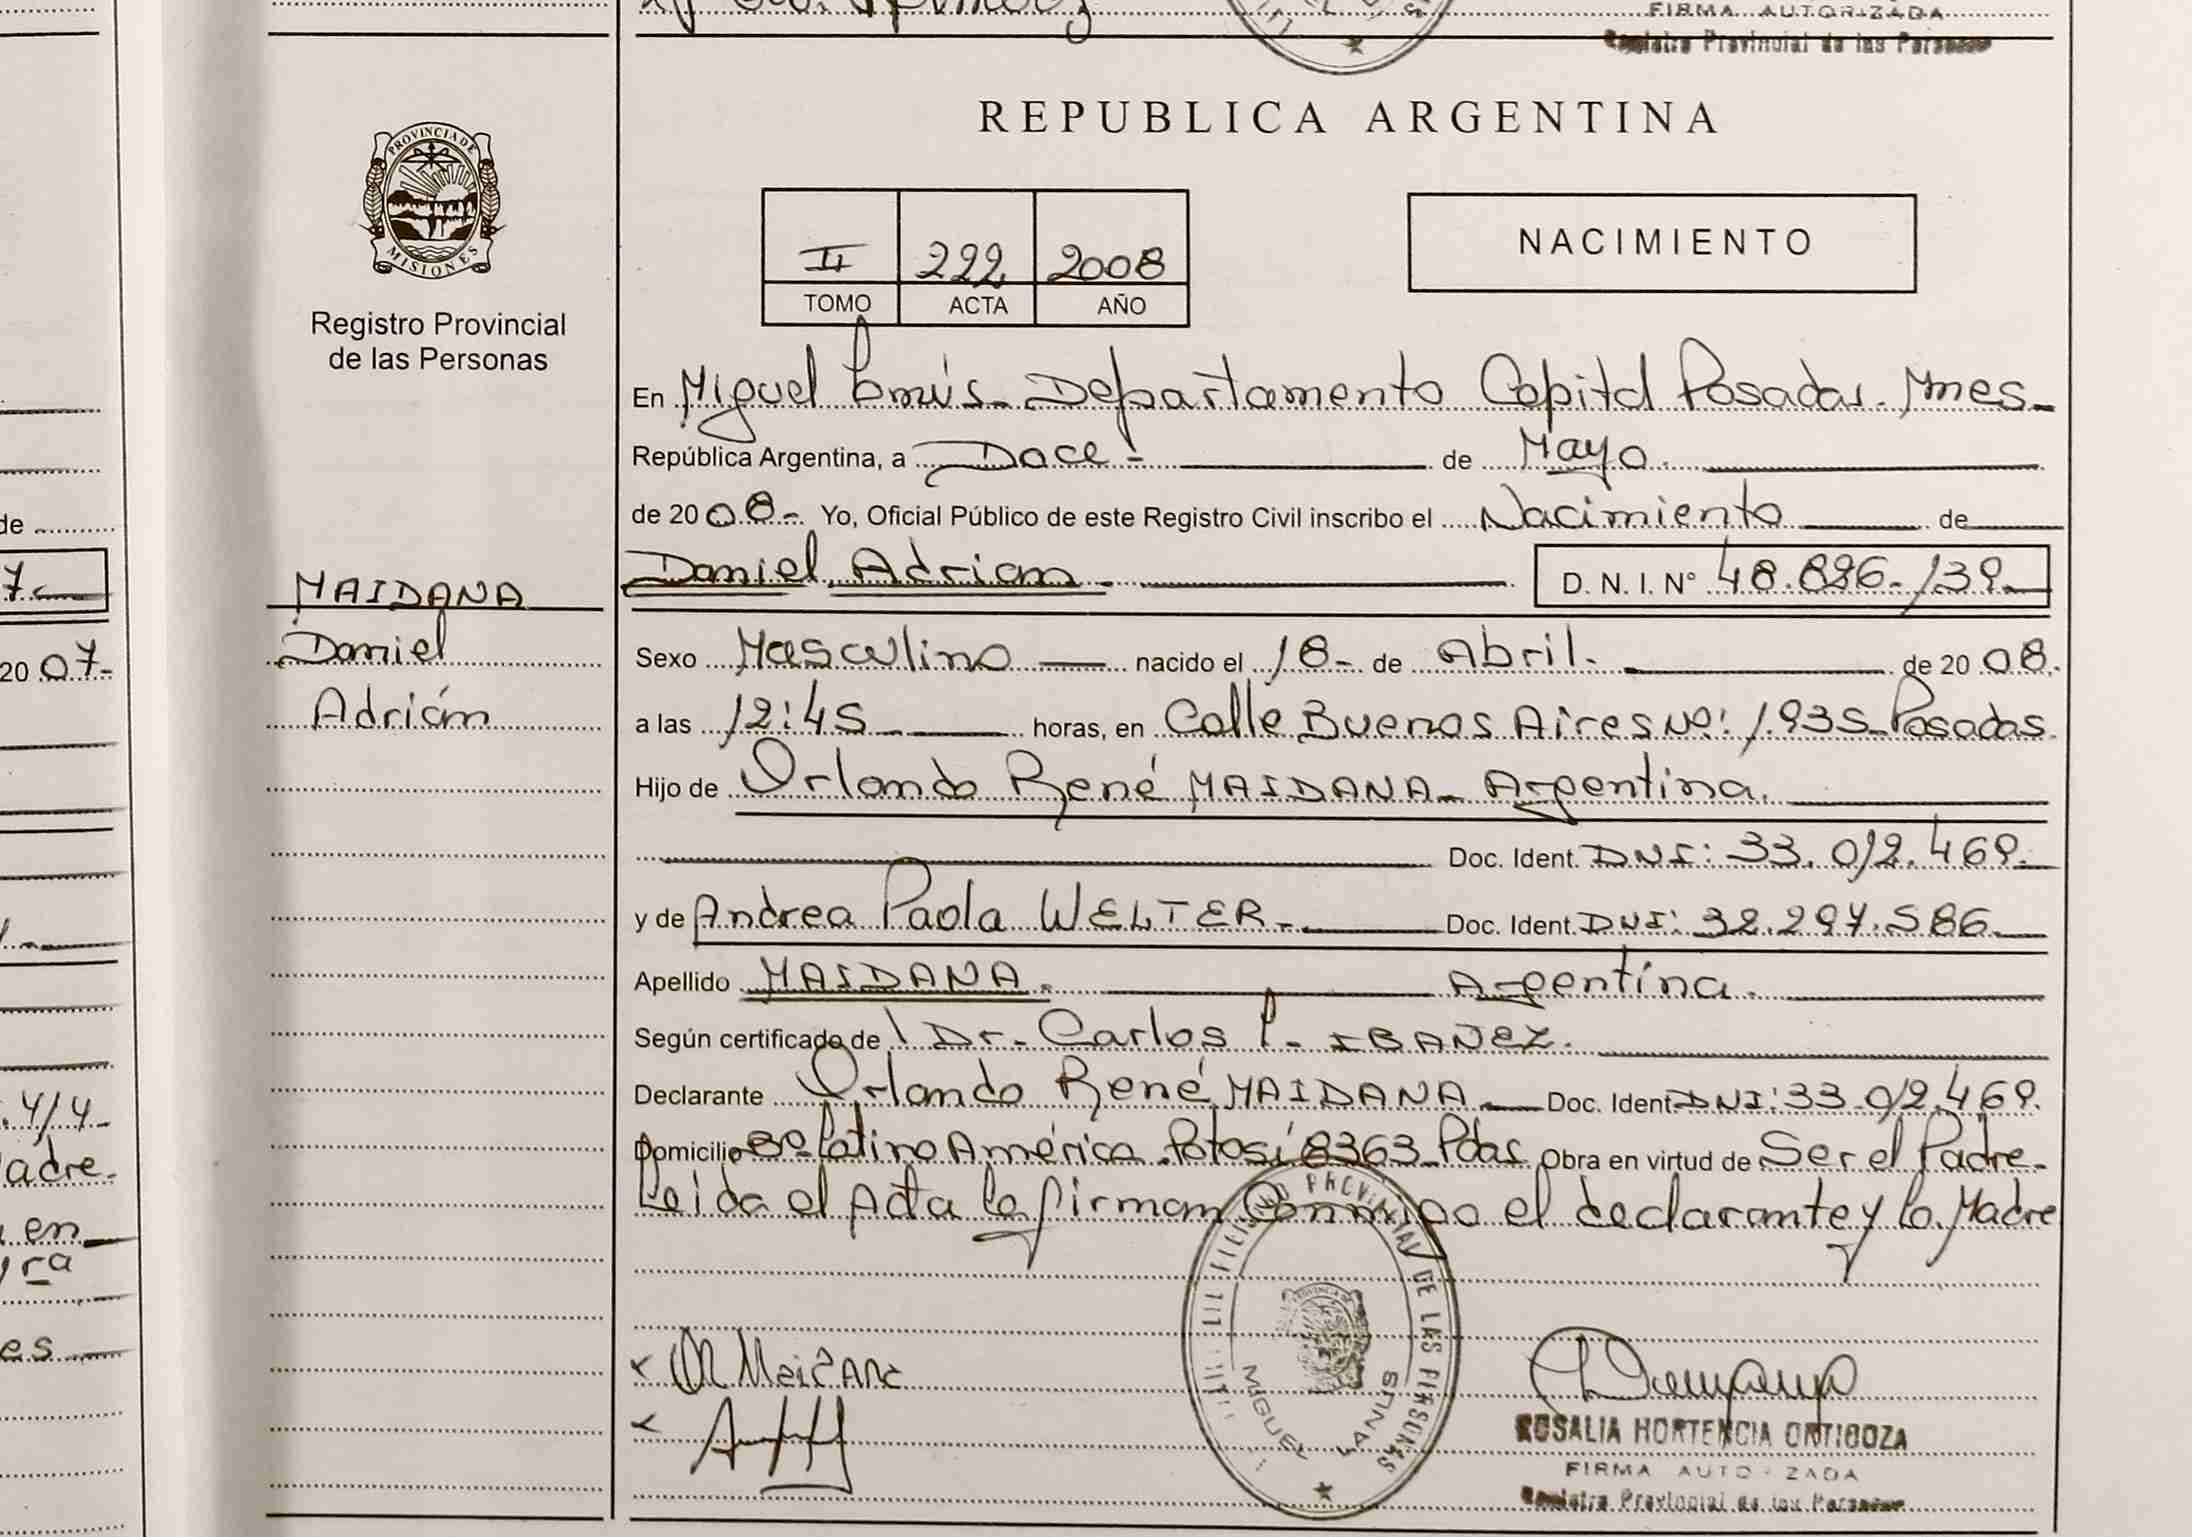 FIRMA AUTORIZADA
Registro Provincial de las Personas
REPUBLICA ARGENTINA
PROVINCIA DE
MISIONES
Registro Provincial
de las Personas
II 222 2008
TOMO ACTA AÑO
NACIMIENTO
En Miguel Lanús - Departamento Capital Posadas. Mnes -
República Argentina, a Doce - de Mayo.
de 2008 - Yo, Oficial Público de este Registro Civil inscribo el Nacimiento de
Daniel Adrian - D. N. I. N° 48.826.139 -
MAIDANA
Daniel
Adrián
Sexo Masculino nacido el 18 - de Abril. de 2008.
a las 12:45 horas, en Calle Buenos Aires Nº: 1.935 - Posadas.
Hijo de Orlando René MAIDANA - Argentina.
Doc. Ident. DNI: 33.012.469 -
y de Andrea Paola WELTER - Doc. Ident. DNI: 32.297.586 -
Apellido MAIDANA. Argentina.
Según certificado de Dr. Carlos P. IBAÑEZ.
Declarante Orlando René MAIDANA Doc. Ident DNI: 33.012.469.
Domicilio Bº Latino América. Potosí 8363 - Pdas Obra en virtud de Ser el Padre -
Leida el Acta la firman Conmigo el declarante y la Madre
REGISTRO PROVINCIAL DE LAS PERSONAS
MIGUEL LANUS
ROSALIA HORTENCIA ORTIGOZA
FIRMA AUTORIZADA
Registro Provincial de las Personas
7 -
2007 -
adre.
en
yra
es